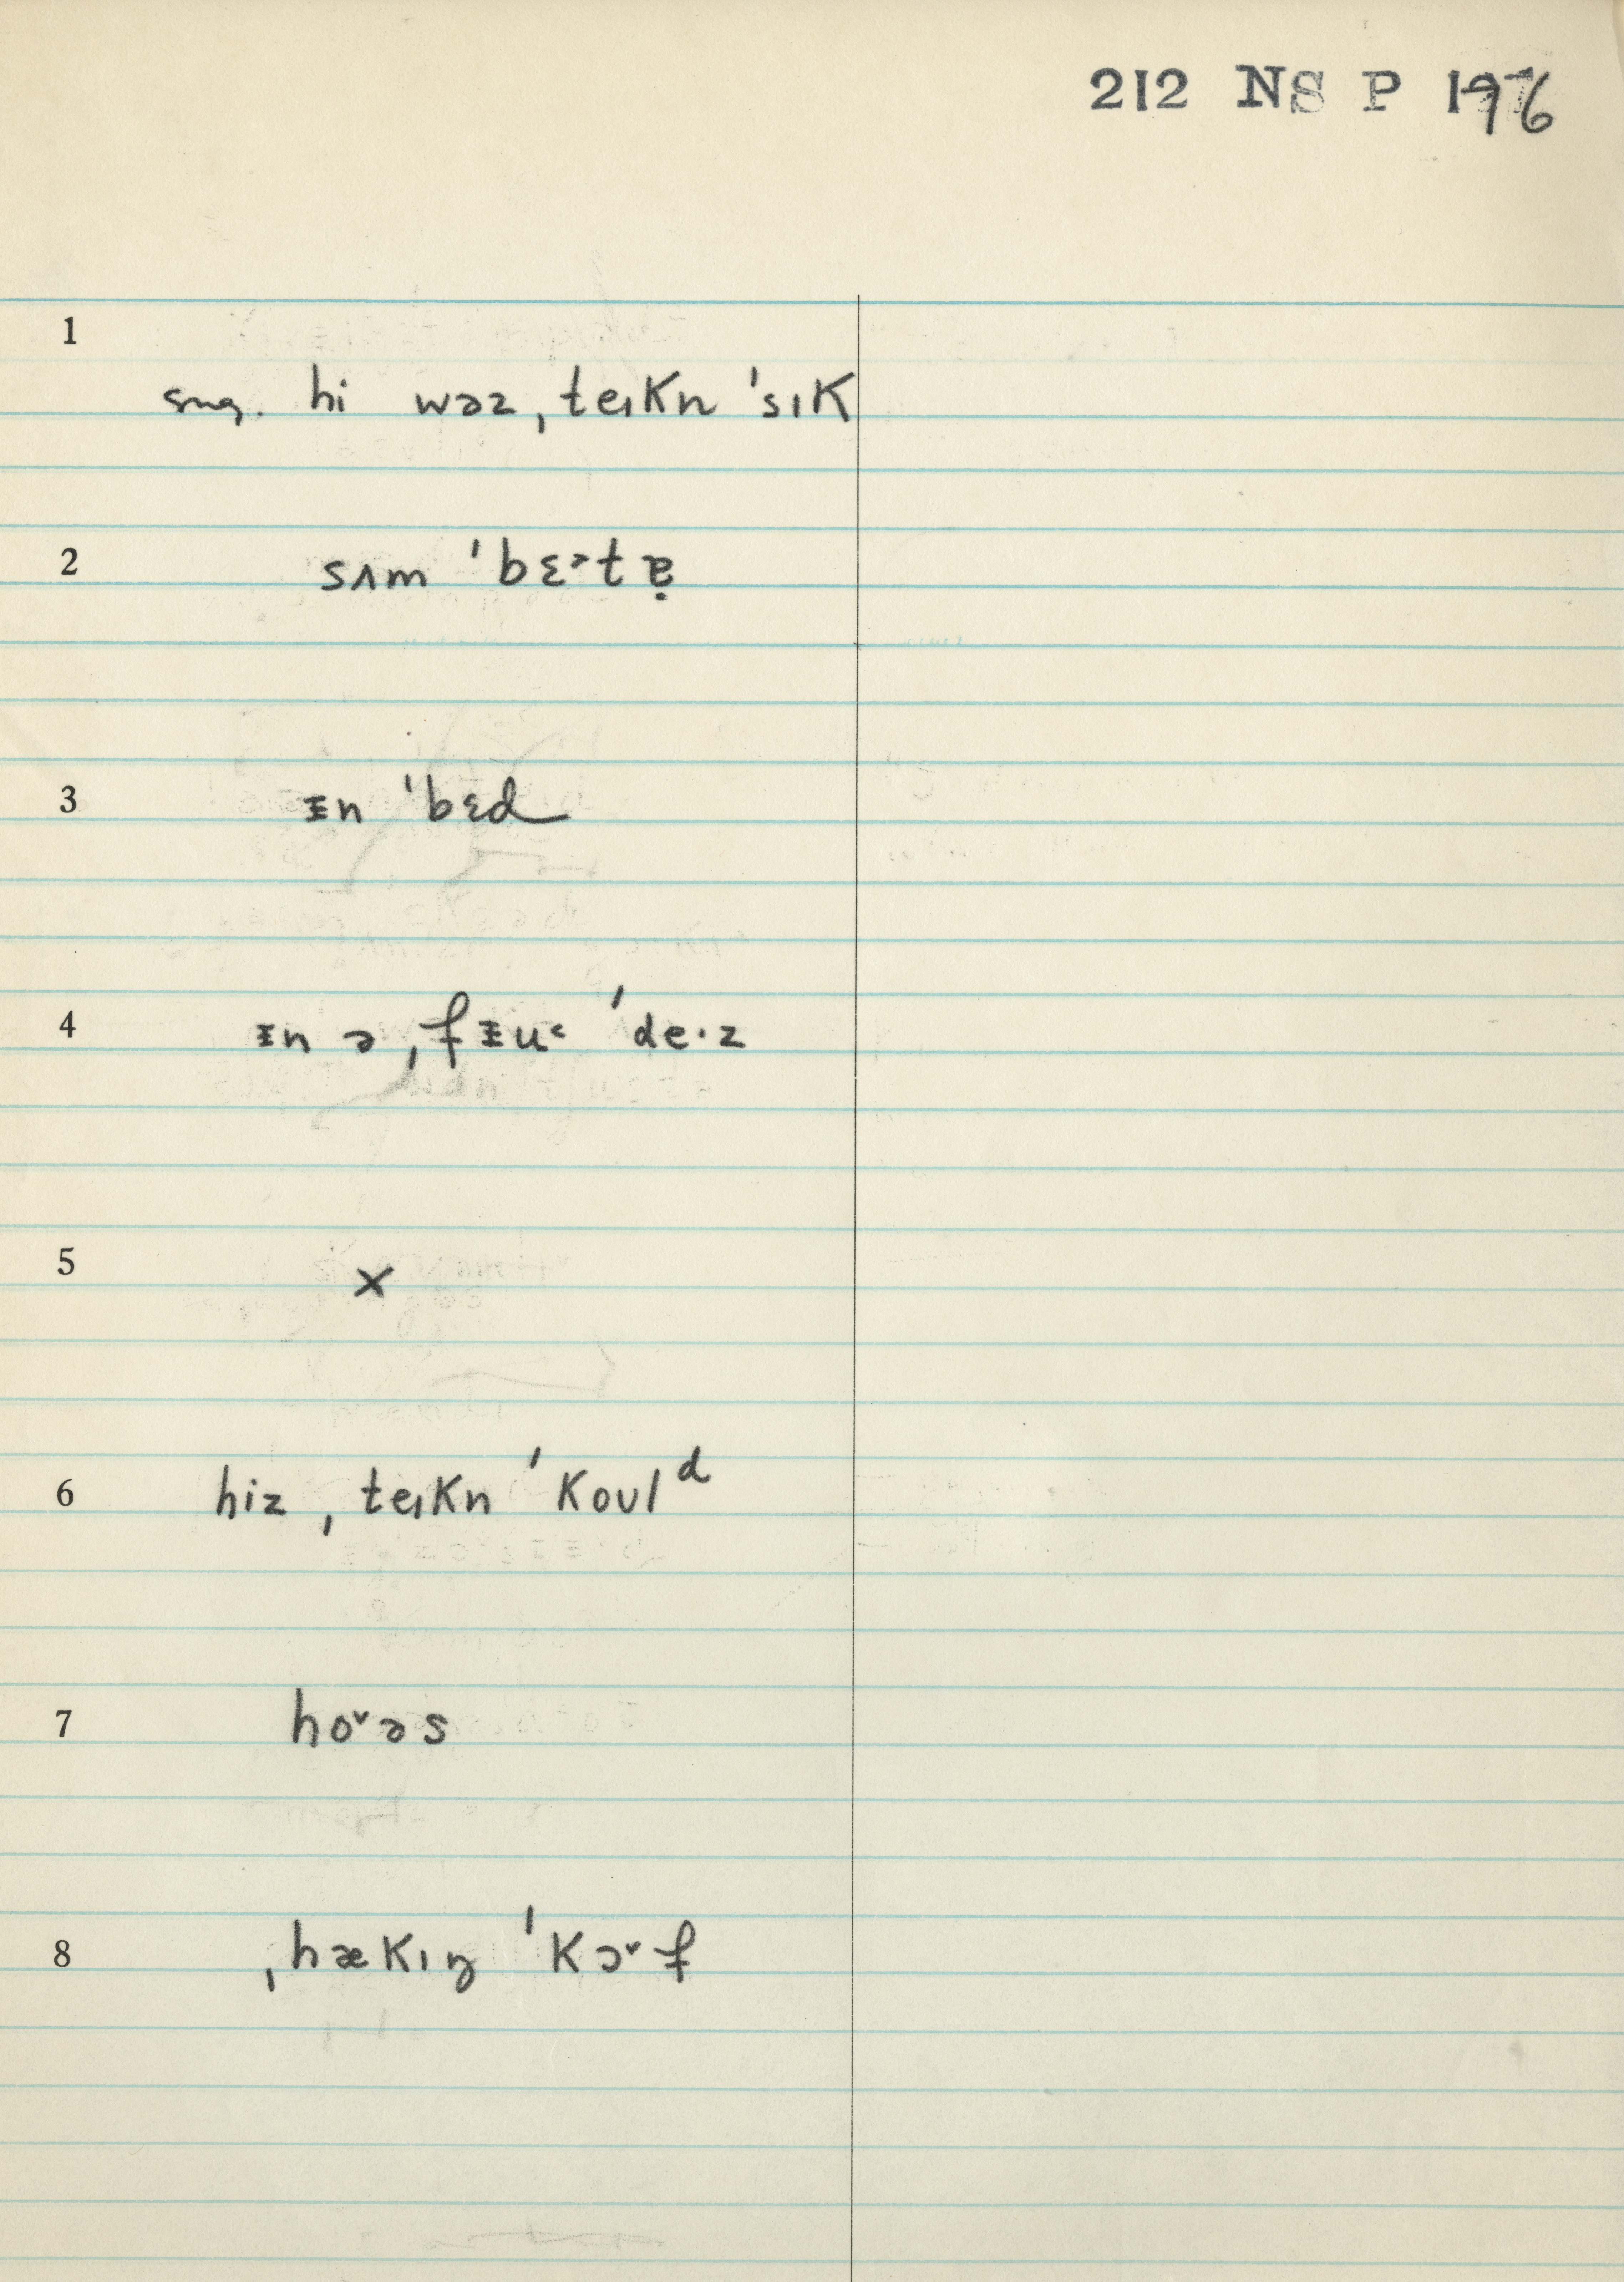 212 NS P 196
1
sug. hi wəz ˌteıKn ˈsıK
2
sʌm ˈbɛ˃tɐ̣
3
ᵻn ˈbɛd
4
ᵻn ə ˌfᵻu˂ ˈde·z
5
x
6
hiz ˌteıKn ˈKoʊlᵈ
7
ho˅əs
8
ˌhæKıŋ ˈKɔ˅f